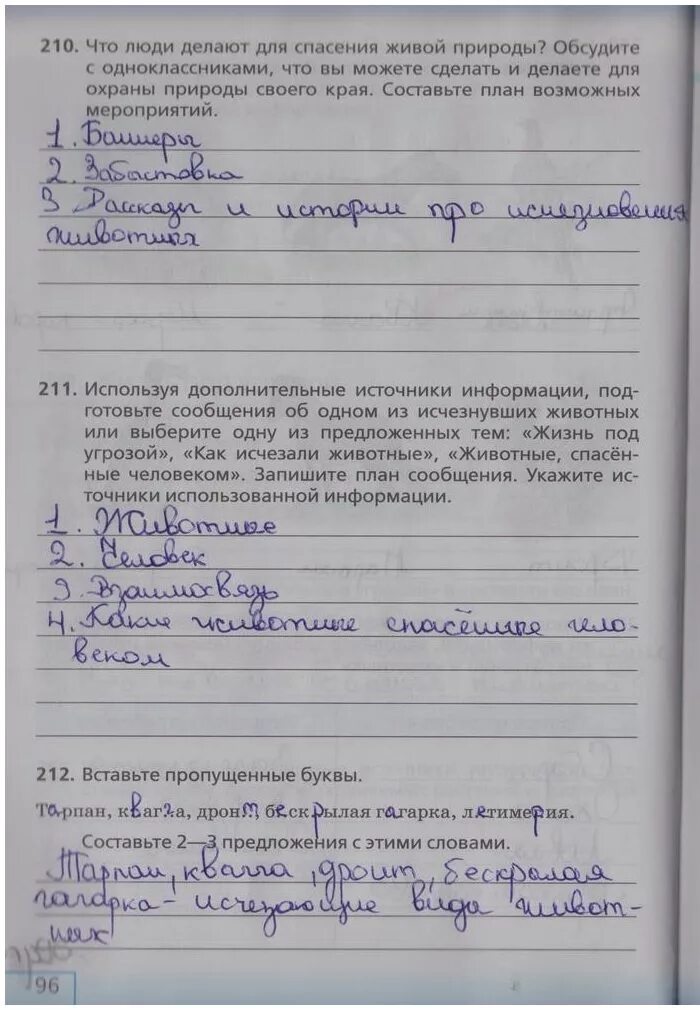 210. Что люди делают для спасения живой природы? Обсудите
с одноклассниками, что вы можете сделать и делаете для
охраны природы своего края. Составьте план возможных
мероприятий.
1. Баннеры
2. Забастовка
3 Рассказы и истории про исчезновения
животных
211. Используя дополнительные источники информации, под-
готовьте сообщения об одном из исчезнувших животных
или выберите одну из предложенных тем: «Жизнь под
угрозой», «Как исчезали животные», «Животные, спасён-
ные человеком». Запишите план сообщения. Укажите ис-
точники использованной информации.
1. Животные
2. Человек
3 Взаимосвязь
4. Какие животные спасённые чело-
веком
212. Вставьте пропущенные буквы.
Тарпан, квагга, дронт, бескрылая гагарка, летимерия.
Составьте 2—3 предложения с этими словами.
Тарпан, квагга, дронт, бескрылая
гагарка - исчезающие виды живот-
ных
96